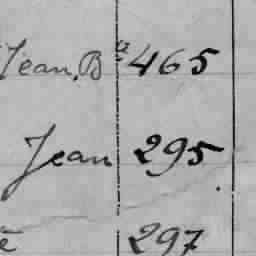 Jean, Bte 465
Jean 295
297